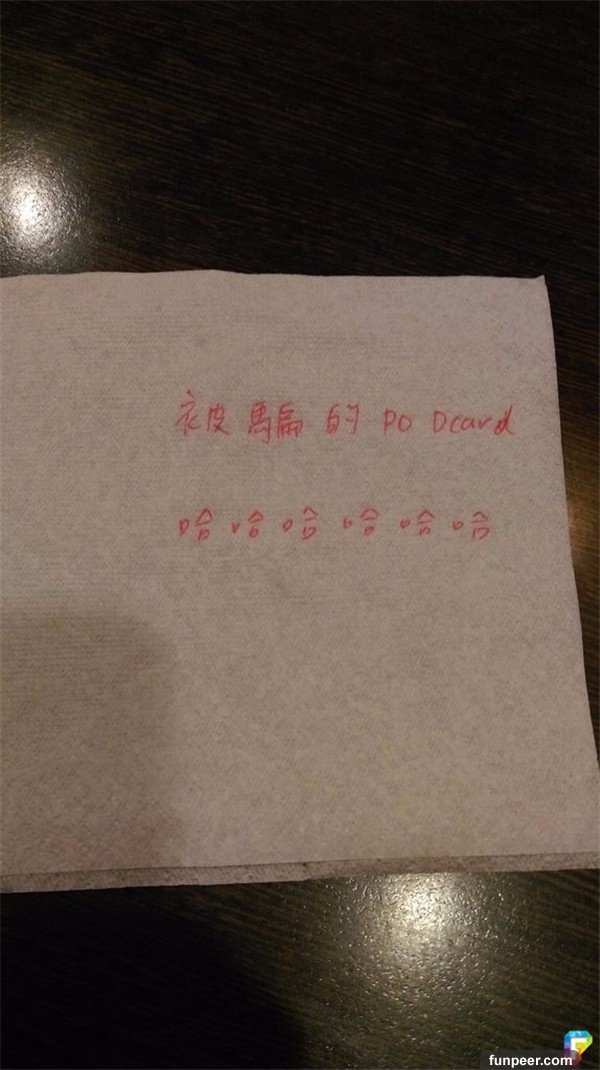 被騙的 PO Dcard
哈哈哈哈哈哈
funpeer.com